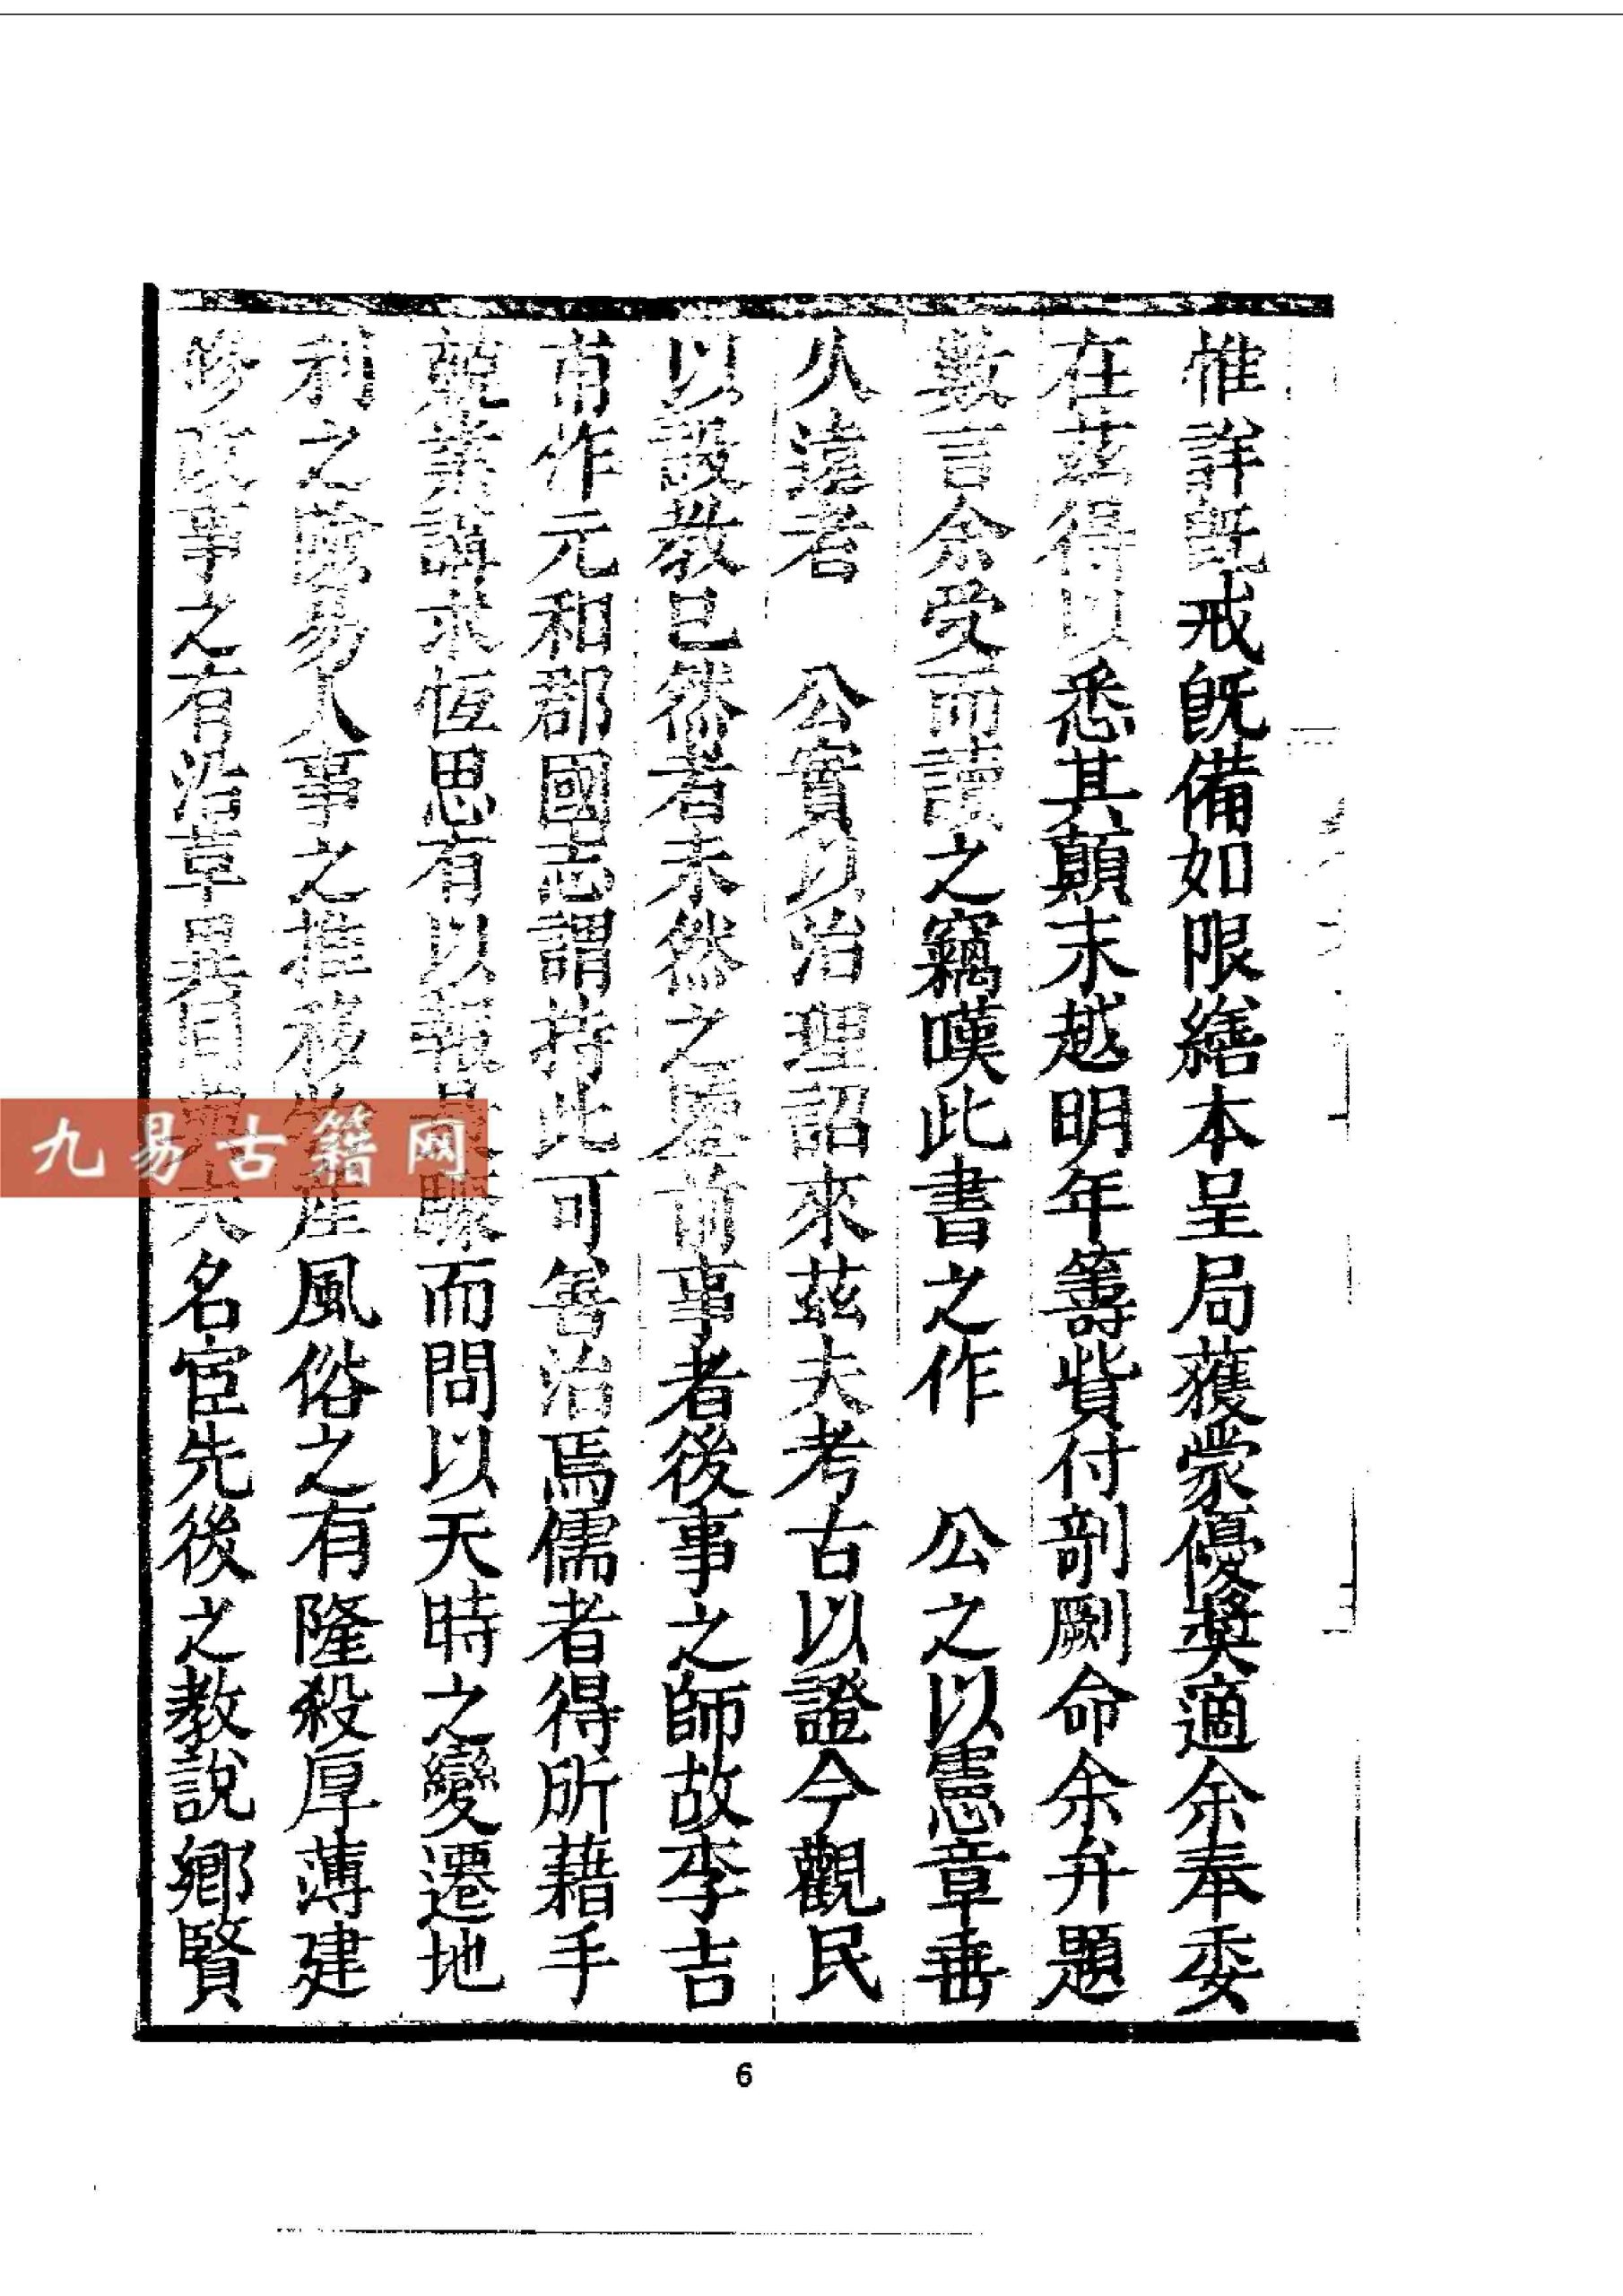 惟詳既戒旣備如限繕本呈局獲蒙優奬適余奉委
在茲得以悉其顛末越明年籌貲付剞劂命余弁題
數言余受而讀之竊嘆此書之作 公之以憲章垂
久遠者 公實以治理詔來茲夫考古以證今觀民
以設教已然者未然之鑒前事者後事之師故李吉
甫作元和郡國志謂持此可善治焉儒者得所藉手
兢業講求恆思有以報而問以天時之變遷地
利之險易人事之推移物產風俗之有隆殺厚薄建
修政事之有沿革異同大名宦先後之教說鄉賢
九易古籍网
6